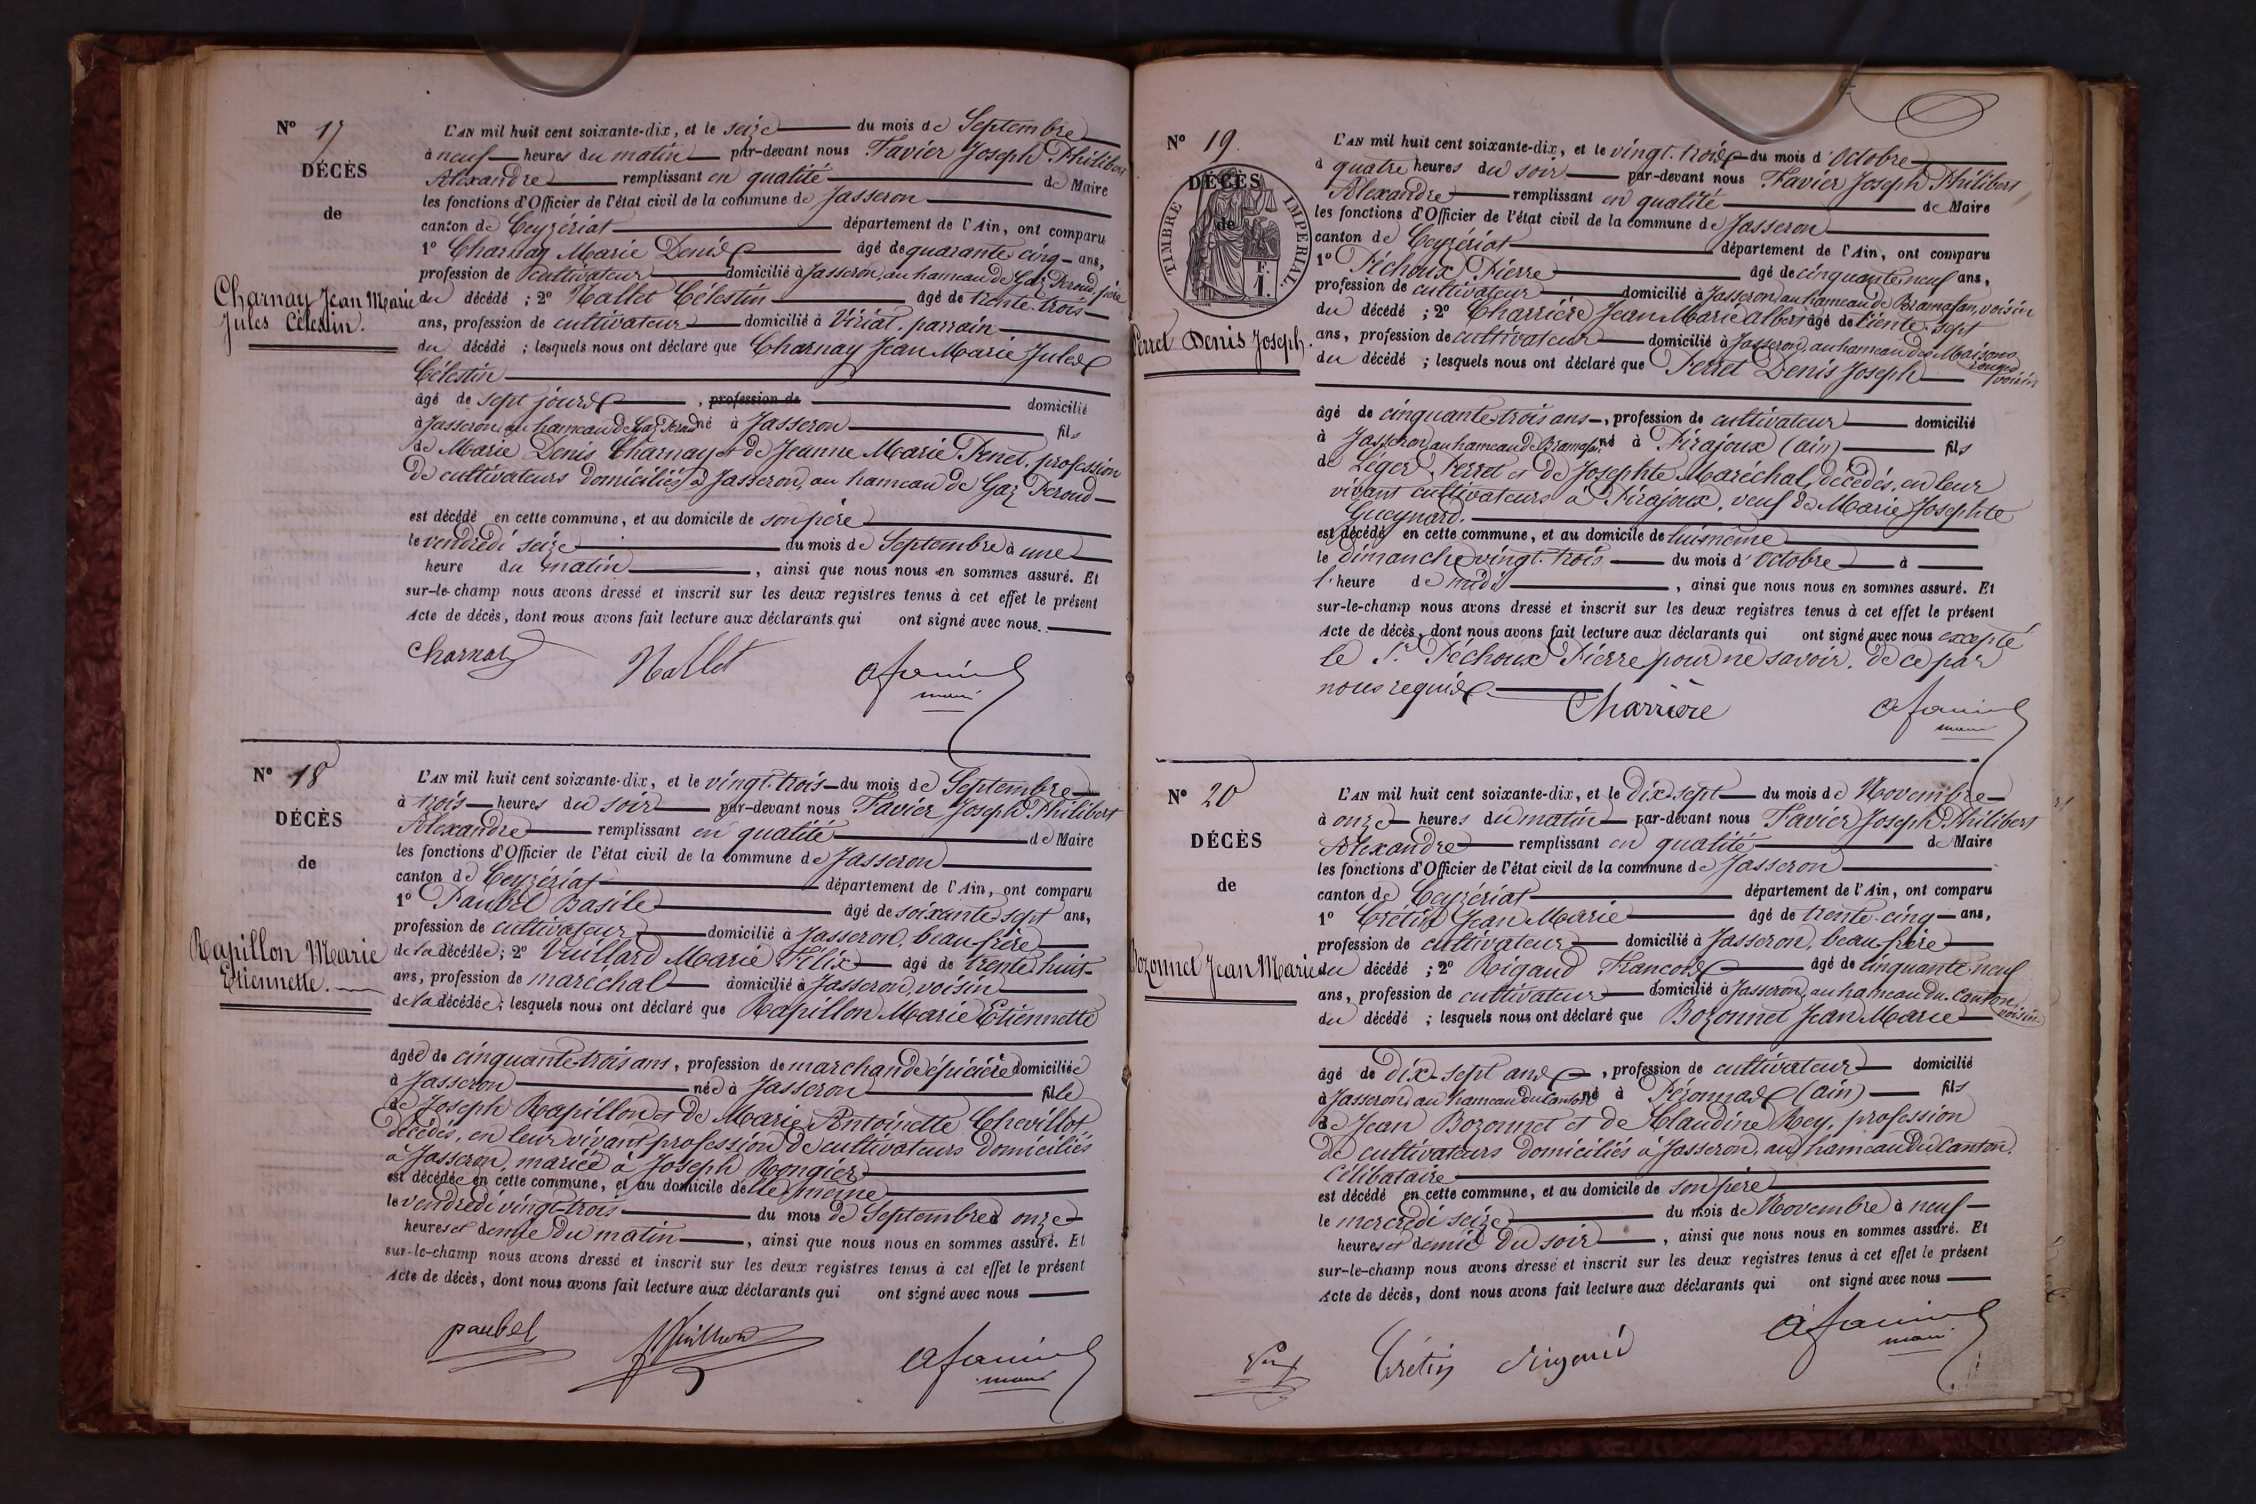 Nº 17
DÉCÈS
de
Charnay Jean Marie
Jules Célestin.
L'AN mil huit cent soixante-dix, et le seize du mois de Septembre
à neuf heures du matin par-devant nous Favier Joseph Philibert
Alexandre remplissant en qualité de Maire
les fonctions d'Officier de l'état civil de la commune de Jasseron
canton de Ceyzériat département de l'Ain, ont comparu
1º Charnay Marie Denis âgé de quarante cinq ans,
profession de cultivateur domicilié à Jasseron, au hameau de Gaz Peroud père
du décédé ; 2º Nallet Célestin âgé de trente-trois
ans, profession de cultivateur domicilié à Viriat, parrain
du décédé ; lesquels nous ont déclaré que Charnay Jean Marie Jules
Célestin
âgé de sept jours , profession de domicilié
à Jasseron, au hameau de Gaz Peroud né à Jasseron fils
de Marie Denis Charnay et de Jeanne Marie Penet, profession
de cultivateurs domiciliés à Jasseron, au hameau de Gaz Peroud
est décédé en cette commune, et au domicile de son père
le vendredi seize du mois de Septembre à une
heure du matin , ainsi que nous nous en sommes assuré. Et
sur-le-champ nous avons dressé et inscrit sur les deux registres tenus à cet effet le présent
Acte de décès, dont nous avons fait lecture aux déclarants qui ont signé avec nous.
Charnay Nallet A favier
maire
Nº 18
DÉCÈS
de
Rapillon Marie
Etiennette.
L'AN mil huit cent soixante-dix, et le vingt-trois du mois de Septembre
à trois heures du soir par-devant nous Favier Joseph Philibert
Alexandre remplissant en qualité de Maire
les fonctions d'Officier de l'état civil de la commune de Jasseron
canton de Ceyzériat département de l'Ain, ont comparu
1º Paubel Basile âgé de soixante-sept ans,
profession de cultivateur domicilié à Jasseron, beau-frère
de la décédée ; 2º Vuillard Marie Félix âgé de trente-huit
ans, profession de maréchal domicilié à Jasseron, voisin
de la décédée ; lesquels nous ont déclaré que Rapillon Marie Etiennette
âgée de cinquante-trois ans, profession de marchande épicière domiciliée
à Jasseron née à Jasseron fille
de Joseph Rapillon et de Marie Antoinette Chevillot
décédés, en leur vivant profession de cultivateurs domiciliés
à Jasseron, mariée à Joseph Rongier
est décédée en cette commune, et au domicile d'elle même
le vendredi vingt-trois du mois de Septembre à onze
heures et demie du matin , ainsi que nous nous en sommes assuré. Et
sur-le-champ nous avons dressé et inscrit sur les deux registres tenus à cet effet le présent
Acte de décès, dont nous avons fait lecture aux déclarants qui ont signé avec nous
paubel Vuillard A favier
maire
Nº 19.
DÉCÈS
de
TIMBRE IMPÉRIAL.
F.
1.
Perret Denis Joseph.
L'AN mil huit cent soixante-dix, et le vingt-trois du mois d'Octobre
à quatre heures du soir par-devant nous Favier Joseph Philibert
Alexandre remplissant en qualité de Maire
les fonctions d'Officier de l'état civil de la commune de Jasseron
canton de Ceyzériat département de l'Ain, ont comparu
1º Péchoux Pierre âgé de cinquante-neuf ans,
profession de cultivateur domicilié à Jasseron au hameau de Bramafan, voisin
du décédé ; 2º Charrière Jean Marie albert âgé de trente-sept
ans, profession de cultivateur domicilié à Jasseron, au hameau des Maisons
rouges voisin
du décédé ; lesquels nous ont déclaré que Perret Denis Joseph
âgé de cinquante-trois ans , profession de cultivateur domicilié
à Jasseron au hameau de Bramafan né à Pirajoux (ain) fils
de Léger Perret et de Josephte Maréchal, décédés, en leur
vivant cultivateurs à Pirajoux, veuf de Marie Josephte
Gueynard.
est décédé en cette commune, et au domicile de lui même
le dimanche vingt-trois du mois d'Octobre à
l'heure de midi , ainsi que nous nous en sommes assuré. Et
sur-le-champ nous avons dressé et inscrit sur les deux registres tenus à cet effet le présent
Acte de décès, dont nous avons fait lecture aux déclarants qui ont signé avec nous excepté
le Sr Péchoux Pierre pour ne savoir, de ce par
nous requis
Charrière A favier
maire
Nº 20
DÉCÈS
de
Bozonnet Jean Marie
L'AN mil huit cent soixante-dix, et le dix-sept du mois de Novembre
à onze heures du matin par-devant nous Favier Joseph Philibert
Alexandre remplissant en qualité de Maire
les fonctions d'Officier de l'état civil de la commune de Jasseron
canton de Ceyzériat département de l'Ain, ont comparu
1º Crétin Jean Marie âgé de trente-cinq ans,
profession de cultivateur domicilié à Jasseron, beau-frère
du décédé ; 2º Rigaud Francois âgé de cinquante-neuf
ans, profession de cultivateur domicilié à Jasseron, au hameau du Canton,
voisin
du décédé ; lesquels nous ont déclaré que Bozonnet Jean Marie
âgé de dix-sept ans , profession de cultivateur domicilié
à Jasseron, au hameau du Canton né à Pézonnas (ain) fils
de Jean Bozonnet et de Claudine Rey, profession
de cultivateurs domiciliés à Jasseron, au hameau du Canton.
Célibataire
est décédé en cette commune, et au domicile de son père
le mercredi seize du mois de Novembre à neuf
heures et demie du soir , ainsi que nous nous en sommes assuré. Et
sur-le-champ nous avons dressé et inscrit sur les deux registres tenus à cet effet le présent
Acte de décès, dont nous avons fait lecture aux déclarants qui ont signé avec nous
Crétin rigaud A favier
maire